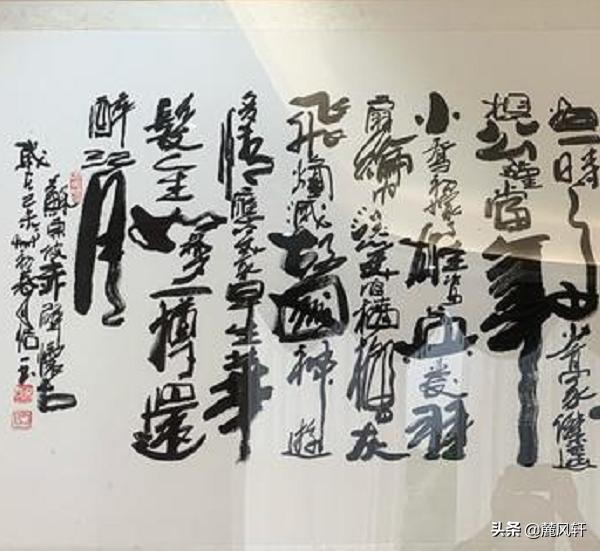 畫一時多少豪傑遥
想公瑾當年
小喬初嫁了雄姿英發羽
扇綸巾談笑間檣櫓灰
飛煙滅故國神遊
多情應笑我早生華
髮人生如夢一樽還
酹江月
蘇東坡赤壁懷古
歲己未
头条 @麓风轩